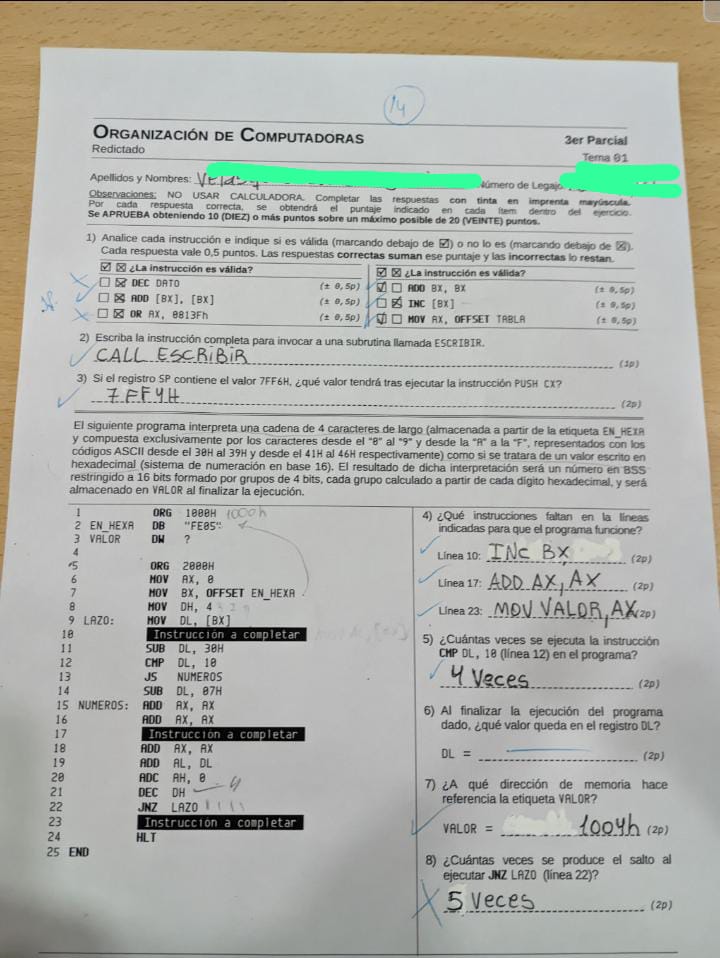 14
ORGANIZACIÓN DE COMPUTADORAS
3er Parcial
Redictado
Tema 01
Apellidos y Nombres:
Número de Legajo
Observaciones: NO USAR CALCULADORA. Completar las respuestas con tinta en imprenta mayúscula.
Por cada respuesta correcta, se obtendrá el puntaje indicado en cada ítem dentro del ejercicio.
Se APRUEBA obteniendo 10 (DIEZ) o más puntos sobre un máximo posible de 20 (VEINTE) puntos.
1) Analice cada instrucción e indique si es válida (marcando debajo de ☑) o no lo es (marcando debajo de ☒).
Cada respuesta vale 0,5 puntos. Las respuestas correctas suman ese puntaje y las incorrectas lo restan.
☑ ☒ ¿La instrucción es válida?
☐ ☒ DEC DATO (± 0,5p)
☐ ☒ ADD [BX], [BX] (± 0,5p)
☐ ☒ OR AX, 0813Fh (± 0,5p)
☑ ☒ ¿La instrucción es válida?
☑ ☐ ADD BX, BX (± 0,5p)
☐ ☒ INC [BX] (± 0,5p)
☑ ☐ MOV AX, OFFSET TABLA (± 0,5p)
2) Escriba la instrucción completa para invocar a una subrutina llamada ESCRIBIR.
CALL ESCRIBIR (1p)
3) Si el registro SP contiene el valor 7FF6H, ¿qué valor tendrá tras ejecutar la instrucción PUSH CX?
7FF4H (2p)
El siguiente programa interpreta una cadena de 4 caracteres de largo (almacenada a partir de la etiqueta EN_HEXA
y compuesta exclusivamente por los caracteres desde el "0" al "9" y desde la "A" a la "F", representados con los
códigos ASCII desde el 30H al 39H y desde el 41H al 46H respectivamente) como si se tratara de un valor escrito en
hexadecimal (sistema de numeración en base 16). El resultado de dicha interpretación será un número en BSS
restringido a 16 bits formado por grupos de 4 bits, cada grupo calculado a partir de cada dígito hexadecimal, y será
almacenado en VALOR al finalizar la ejecución.
1 ORG 1000H 1000h
2 EN_HEXA DB "FE05"
3 VALOR DW ?
4
5 ORG 2000H
6 MOV AX, 0
7 MOV BX, OFFSET EN_HEXA
8 MOV DH, 4
9 LAZO: MOV DL, [BX]
10 Instrucción a completar
11 SUB DL, 30H
12 CMP DL, 10
13 JS NUMEROS
14 SUB DL, 07H
15 NUMEROS: ADD AX, AX
16 ADD AX, AX
17 Instrucción a completar
18 ADD AX, AX
19 ADD AL, DL
20 ADC AH, 0
21 DEC DH
22 JNZ LAZO
23 Instrucción a completar
24 HLT
25 END
4) ¿Qué instrucciones faltan en la líneas
indicadas para que el programa funcione?
Línea 10: INC BX (2p)
Línea 17: ADD AX, AX (2p)
Línea 23: MOV VALOR, AX (2p)
5) ¿Cuántas veces se ejecuta la instrucción
CMP DL, 10 (línea 12) en el programa?
4 Veces (2p)
6) Al finalizar la ejecución del programa
dado, ¿qué valor queda en el registro DL?
DL = (2p)
7) ¿A qué dirección de memoria hace
referencia la etiqueta VALOR?
VALOR = 1004h (2p)
8) ¿Cuántas veces se produce el salto al
ejecutar JNZ LAZO (línea 22)?
5 Veces (2p)